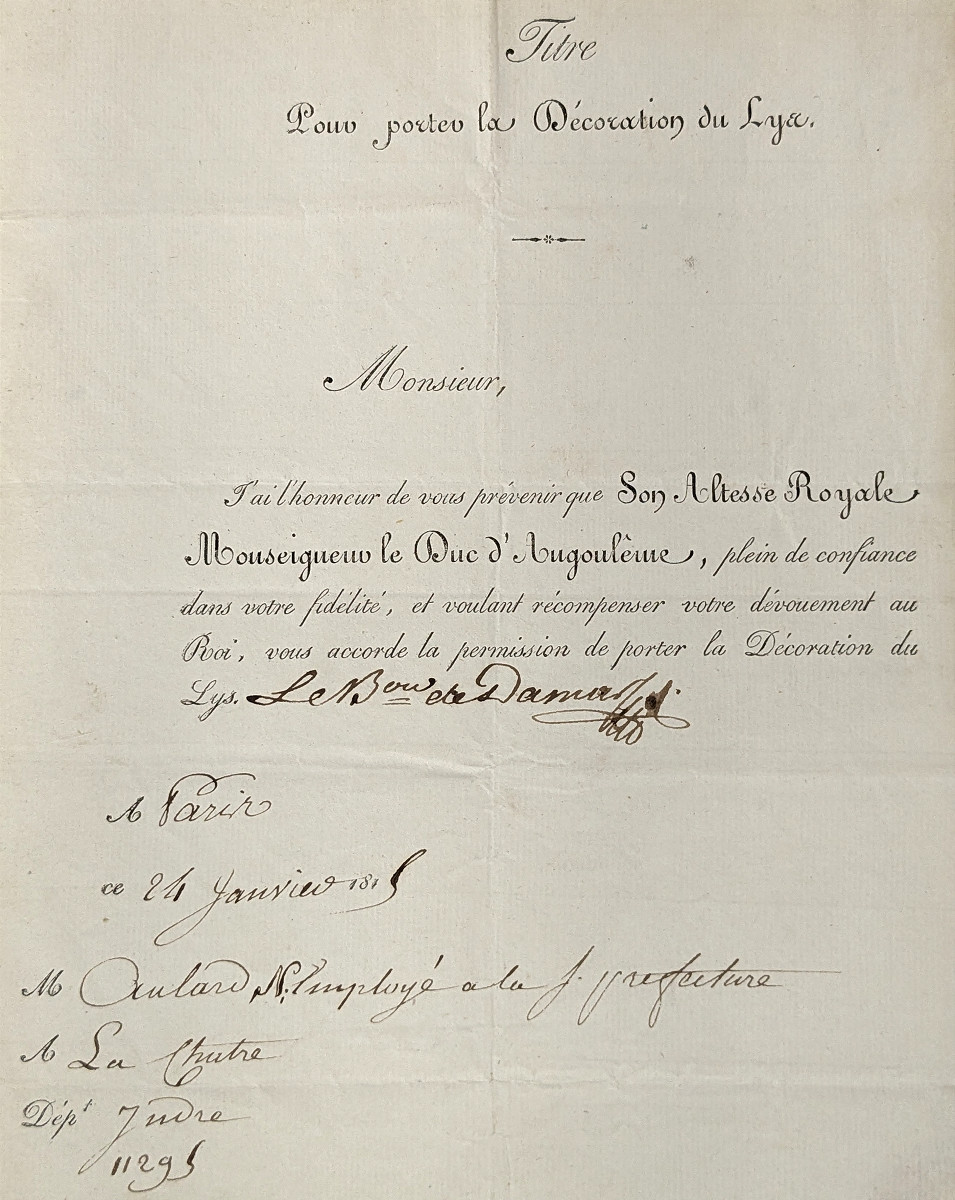 Titre
Pour porter la Décoration du Lys.
Monsieur,
J'ai l'honneur de vous prévenir que Son Altesse Royale
Monseigneur le Duc d'Angoulême, plein de confiance
dans votre fidélité, et voulant récompenser votre dévouement au
Roi, vous accorde la permission de porter la Décoration du
Lys. Le Bon de Damas
A Paris
ce 24 Janvier 1815
M Aulard N. Employé a la s. prefecture
A La Chatre
Dépt Indre
11295